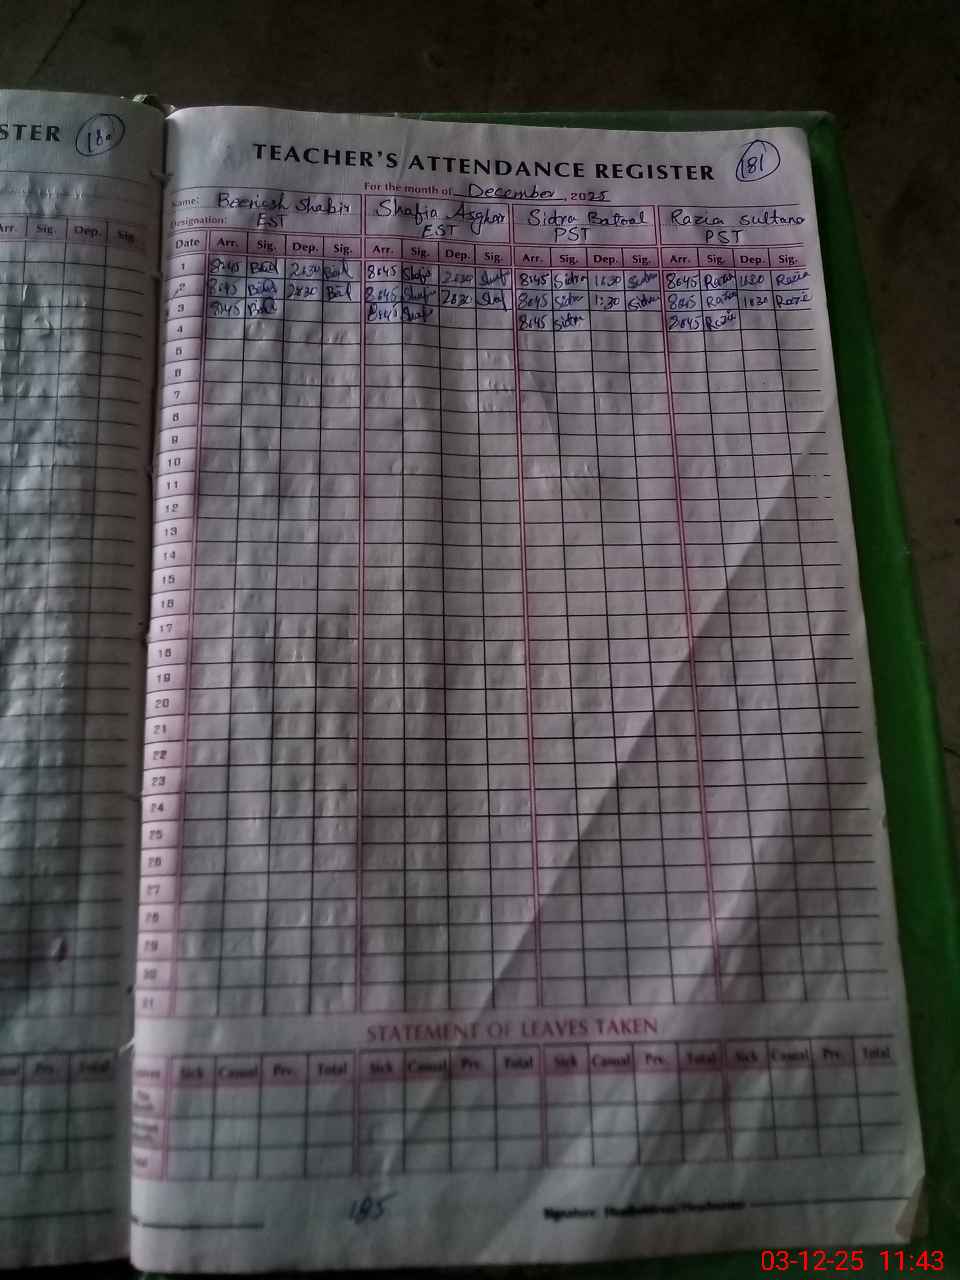 STER 180
TEACHER'S ATTENDANCE REGISTER 181
For the month of December, 2025
Name: Beenish Shabir Shafia Asghar Sidra Batool Razia Sultana
Designation: EST EST PST PST
Arr. Sig. Dep. Sig.
Date Arr. Sig. Dep. Sig. Arr. Sig. Dep. Sig. Arr. Sig. Dep. Sig. Arr. Sig. Dep. Sig.
1 8:45 2:30 8:45 2:30 8:45 Sidra 1:30 Sidra 8:45 Razia 1:30 Razia
2 8:45 2:30 8:45 2:30 8:45 Sidra 1:30 Sidra 8:45 Razia 1:30 Razia
3 8:45 8:45 8:45 Sidra 8:45 Razia
4
5
6
7
8
9
10
11
12
13
14
15
16
17
18
19
20
21
22
23
24
25
26
27
28
29
30
31
STATEMENT OF LEAVES TAKEN
Prv. Total
Sick Casual Prv. Total Sick Casual Prv. Total Sick Casual Prv. Total Sick Casual Prv. Total
185
Signature:
03-12-25 11:43